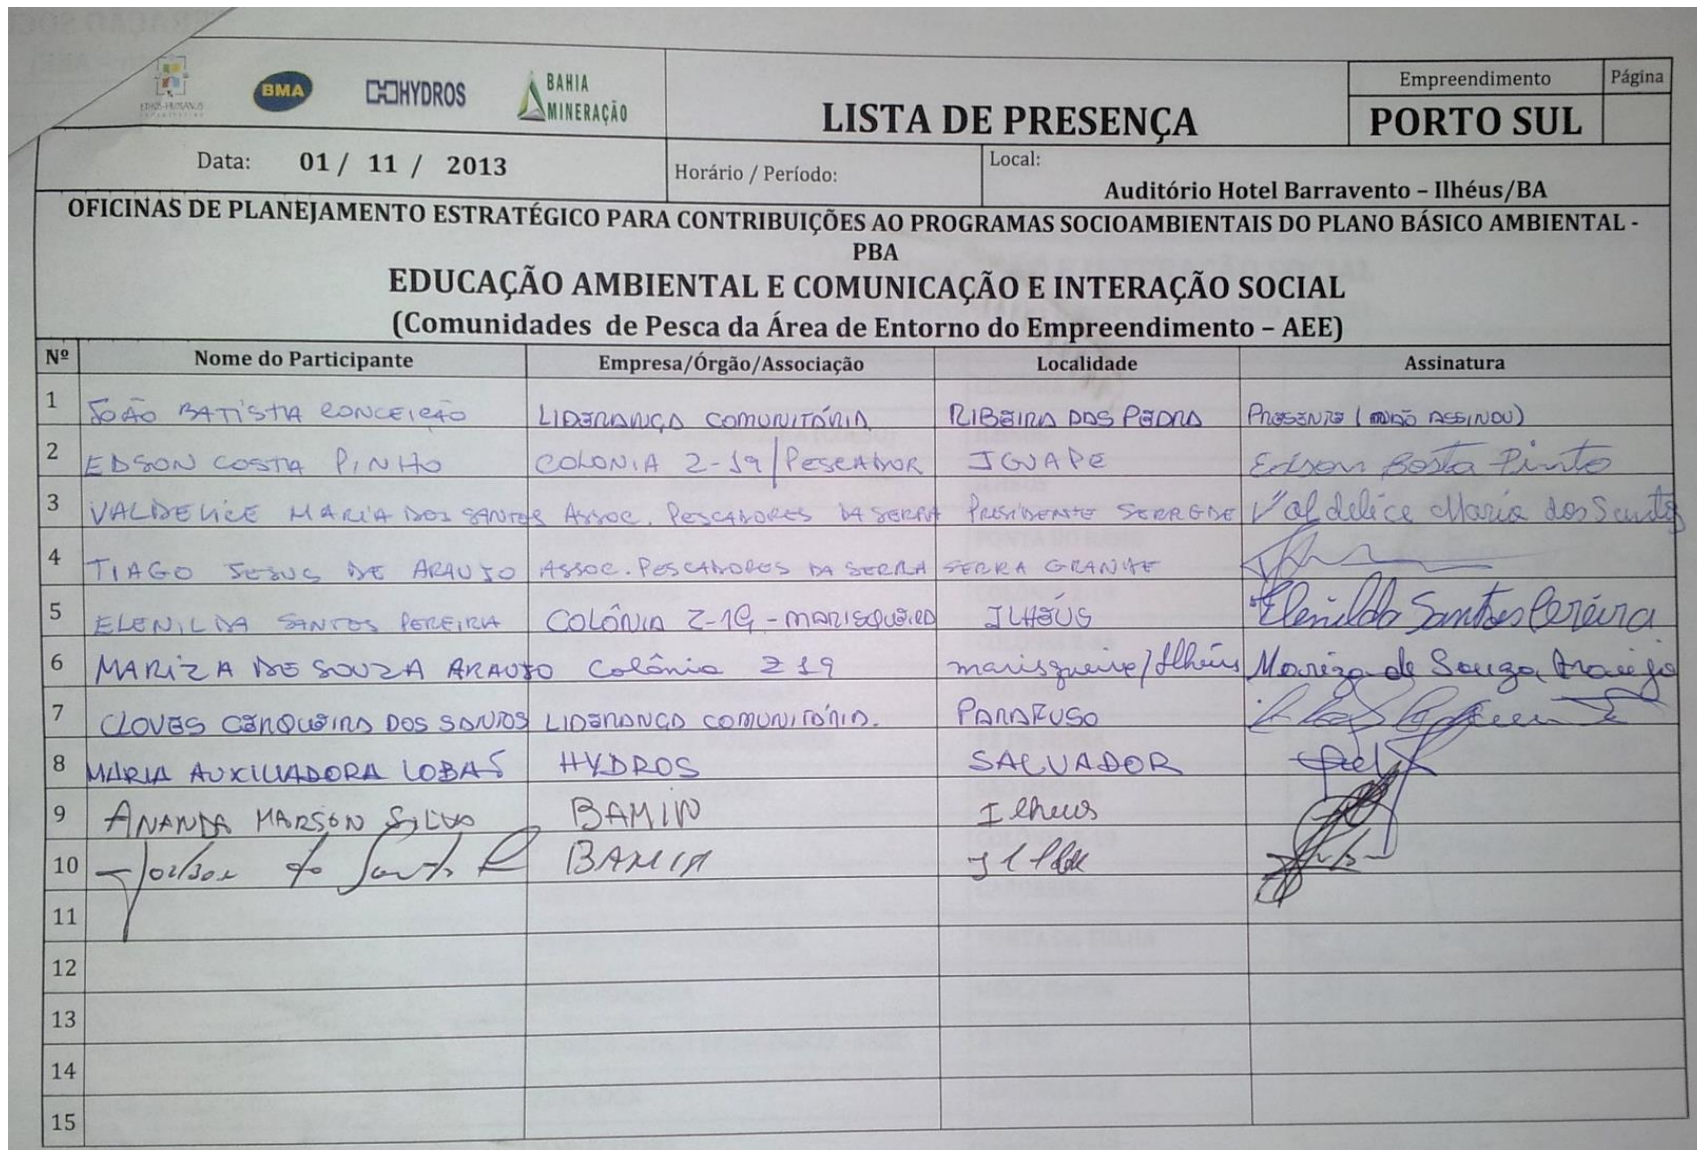 BMA
HYDROS
BAHIA
MINERAÇÃO
LISTA DE PRESENÇA
Empreendimento
Página
PORTO SUL
Data: 01 / 11 / 2013
Horário / Período:
Local:
Auditório Hotel Barravento – Ilhéus/BA
OFICINAS DE PLANEJAMENTO ESTRATÉGICO PARA CONTRIBUIÇÕES AO PROGRAMAS SOCIOAMBIENTAIS DO PLANO BÁSICO AMBIENTAL -
PBA
EDUCAÇÃO AMBIENTAL E COMUNICAÇÃO E INTERAÇÃO SOCIAL
(Comunidades de Pesca da Área de Entorno do Empreendimento – AEE)
Nº Nome do Participante Empresa/Órgão/Associação Localidade Assinatura
1 JOÃO BATISTA CONCEIÇÃO LIDERANÇA COMUNITÁRIA RIBEIRA DAS PEDRA PRESENTE (NÃO ASSINOU)
2 EDSON COSTA PINHO COLONIA Z-19/PESCADOR IGUAPE Edson Costa Pinto
3 VALDELICE MARIA DOS SANTOS ASSOC. PESCADORES DA SERRA PRESIDENTE SERRGDE Valdelice Maria dos Santos
4 TIAGO JESUS DE ARAUJO ASSOC. PESCADORES DA SERRA SERRA GRANDE
5 ELENILDA SANTOS PEREIRA COLÔNIA Z-19 - MARISQUEIRA ILHÉUS Elenilda Santos Pereira
6 MARIZA DE SOUZA ARAUJO Colônia Z 19 marisqueira/Ilhéus Mariza de Souza Araujo
7 CLOVES CERQUEIRA DOS SANTOS LIDERANÇA COMUNITÁRIA. PARAFUSO
8 MARIA AUXILIADORA LOBÃO HYDROS SALVADOR
9 ANANDA MARSON SILVA BAMIN Ilheus
10 BAMIN
11
12
13
14
15